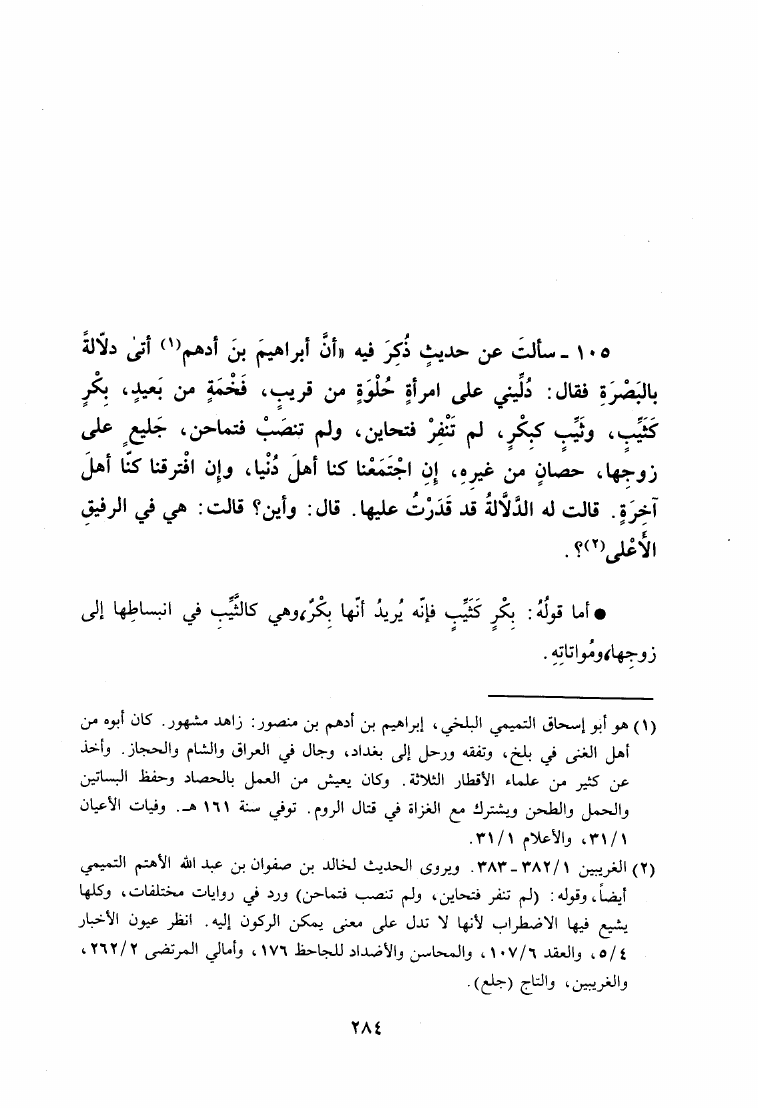 ١٠٥ - سألتَ عن حديثٍ ذُكِرَ فيه «أنَّ أبراهيمَ بنَ أدهم(١) أتىٰ دلّالةً
بالبَصْرَةِ فقال: دُلِّيني على امرأةٍ حُلْوَةٍ من قريبٍ، فَخْمَةٍ من بَعيدٍ، بِكْرٍ
كَثَيِّبٍ، وثَيِّبٍ كبِكْرٍ، لم تَنْفِرْ فتحاين، ولم تنصَبْ فتماحن، جَليعٍ على
زوجِها، حصانٍ من غيرِهِ، إنِ اجْتَمَعْنا كنا أهلَ دُنْيا، وإن افْترقنا كنّا أهلَ
آخِرَةٍ. قالت له الدَّلّالةُ قد قَدَرْتُ عليها. قال: وأين؟ قالت: هي في الرفيقِ
الأَعْلى(٢)؟.
● أما قولُهُ: بِكْرٍ كَثَيِّبٍ فإنّه يُريدُ أنّها بِكْرٌ،وهي كالثَّيِّبِ في انبساطِها إلى
زوجِها،ومُواتاتِهِ.
(١) هو أبو إسحاق التميمي البلخي، إبراهيم بن أدهم بن منصور: زاهد مشهور. كان أبوه من
أهل الغنى في بلخ، وتفقه ورحل إلى بغداد، وجال في العراق والشام والحجاز. وأخذ
عن كثير من علماء الأقطار الثلاثة. وكان يعيش من العمل بالحصاد وحفظ البساتين
والحمل والطحن ويشترك مع الغزاة في قتال الروم. توفي سنة ١٦١ هـ. وفيات الأعيان
٣١/١، والأعلام ٣١/١.
(٢) الغريبين ٣٨٢/١ - ٣٨٣. ويروى الحديث لخالد بن صفوان بن عبد الله الأهتم التميمي
أيضاً، وقوله: (لم تنفر فتحاين، ولم تنصب فتماحن) ورد في روايات مختلفات، وكلها
يشيع فيها الاضطراب لأنها لا تدل على معنى يمكن الركون إليه. انظر عيون الأخبار
٥/٤، والعقد ١٠٧/٦، والمحاسن والأضداد للجاحظ ١٧٦، وأمالي المرتضى ٢٦٢/٢،
والغريبين، والتاج (جلع).
٢٨٤